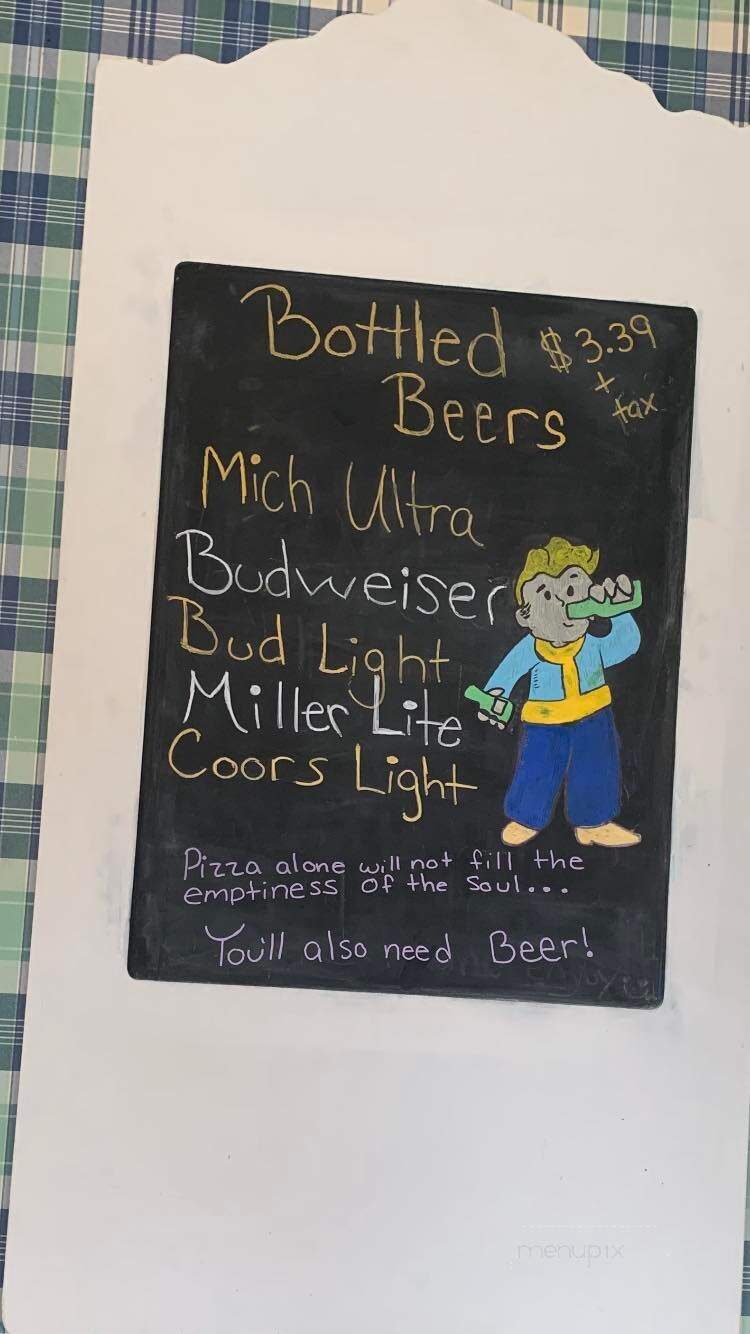 Bottled $3.39
Beers + tax
Mich Ultra
Budweiser
Bud Light
Miller Lite
Coors Light
Pizza alone will not fill the
emptiness of the Soul...
You'll also need Beer!
menupix